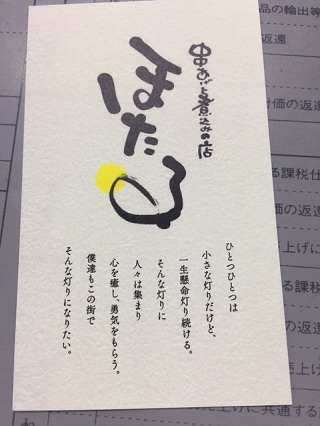 串あげと煮込みの店
ほたる
ひとつひとつは
小さな灯りだけど、
一生懸命灯り続ける。
そんな灯りに
人々は集まり
心を癒し、勇気をもらう。
僕達もこの街で
そんな灯りになりたい。
品の輸出等
返還
価の返還
る課税仕
の返還
上げに